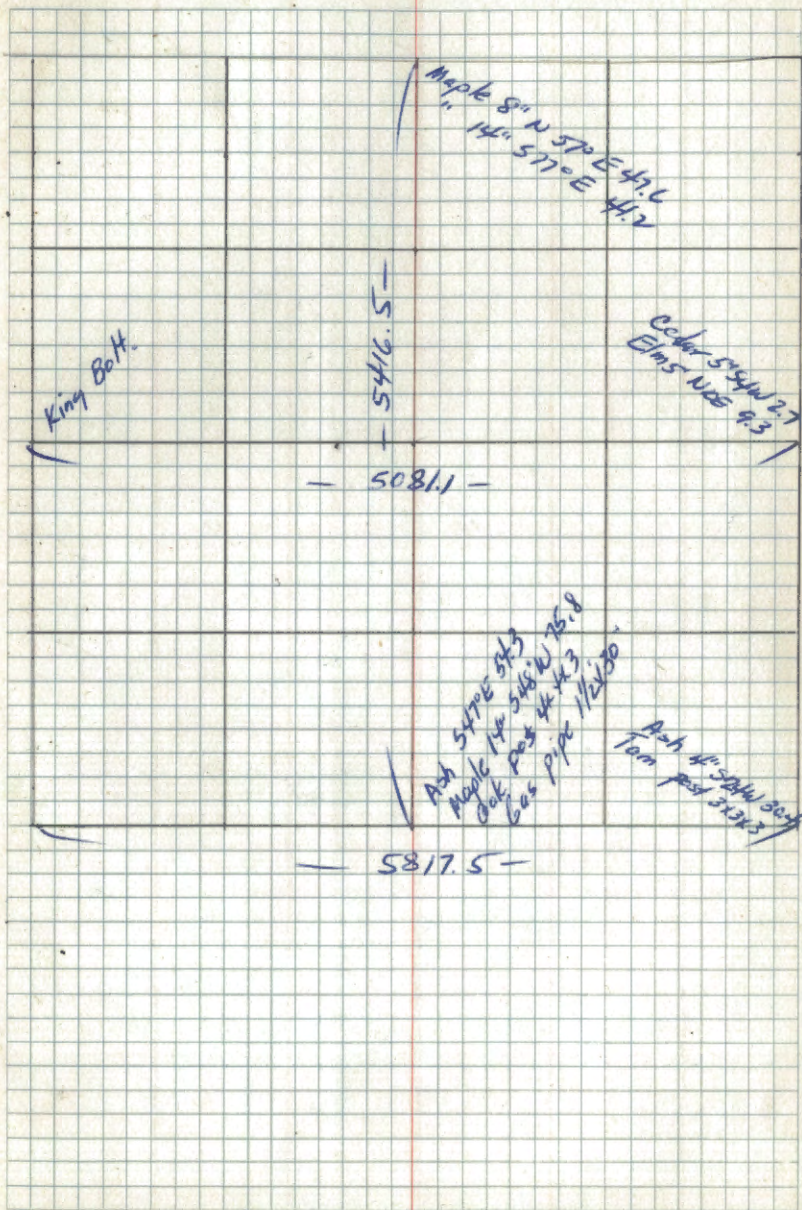 Maple 8" N 57° E 47.6
" 14" S 77° E 41.2
- 5416.5 -
King Bolt.
Cedar 5" S4W 2.7
Elm 5" E 9.3
- 5081.1 -
Ash S47°E 54.3
Maple 14" S48°W 75.8
Oak post 4x4x3
Gas pipe 1 1/2 x 30"
Ash 4"
Tam post 3x3x3
- 5817.5 -